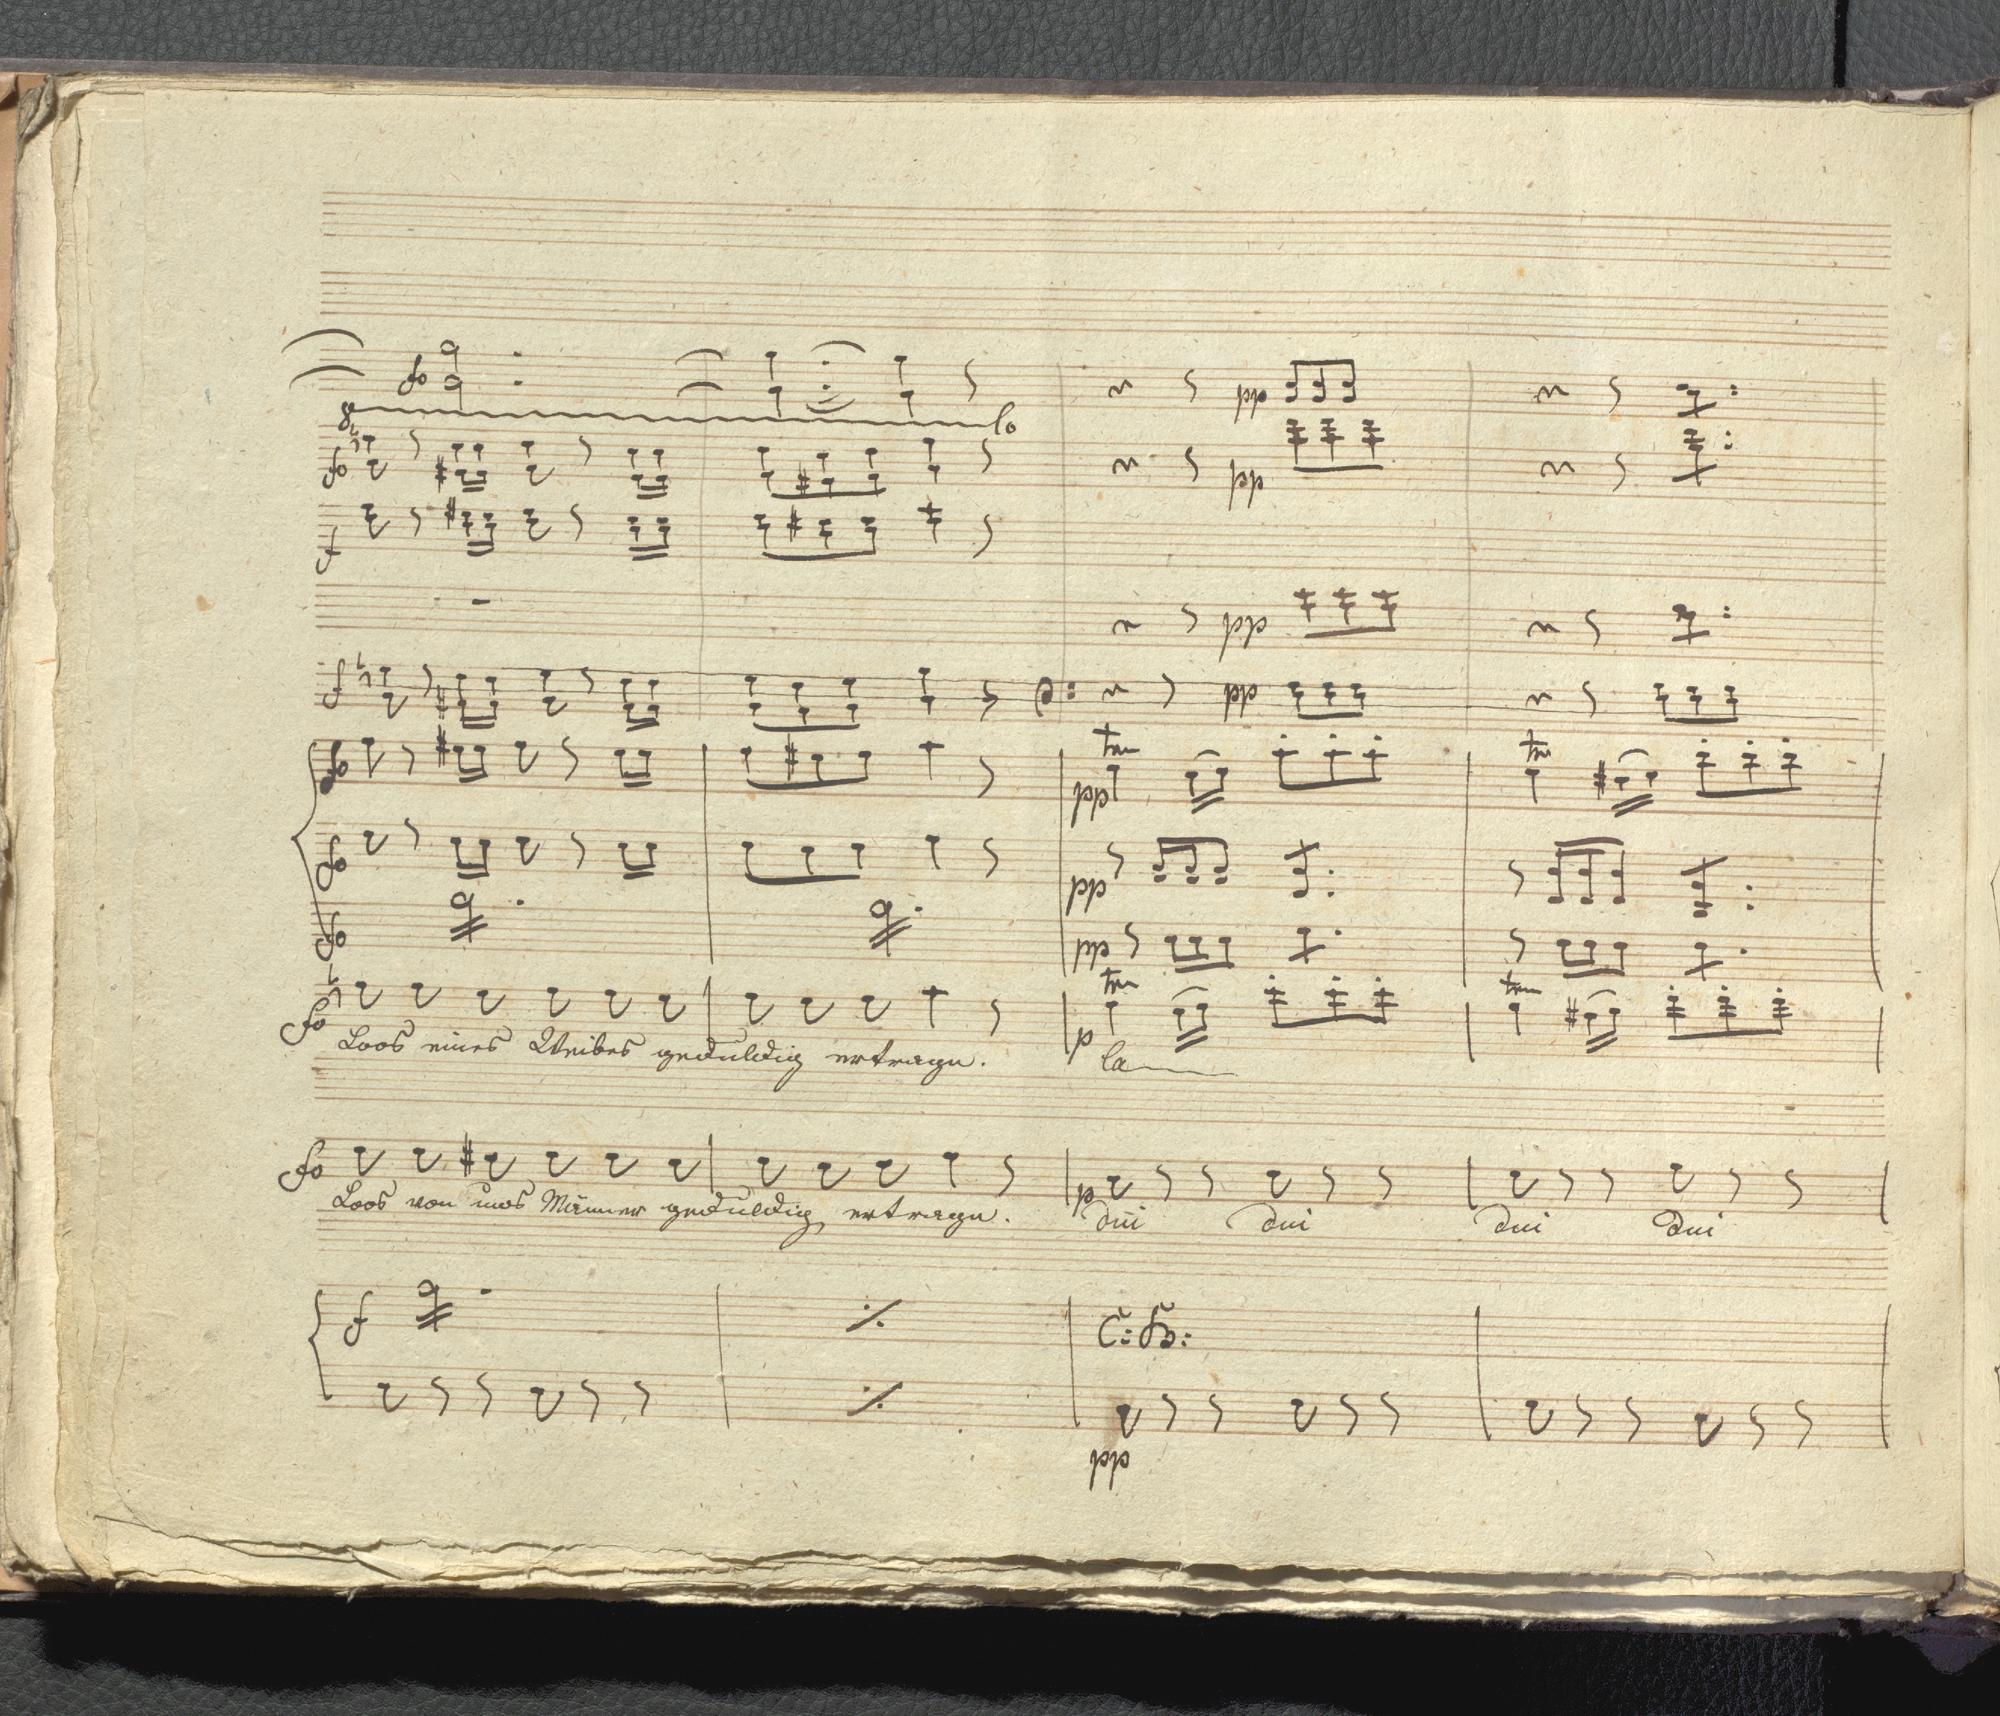 fo
8 lo
fo
pp
pp
f
pp
f
pp
fo
tr
tr
pp
fo
pp
fo
pp
tr
tr
fo
p
Loos eines Weibes geduldig ertragn. la
fo
p
Loos von uns Männer geduldig ertragn. dui dui dui dui
f
C: B:
pp